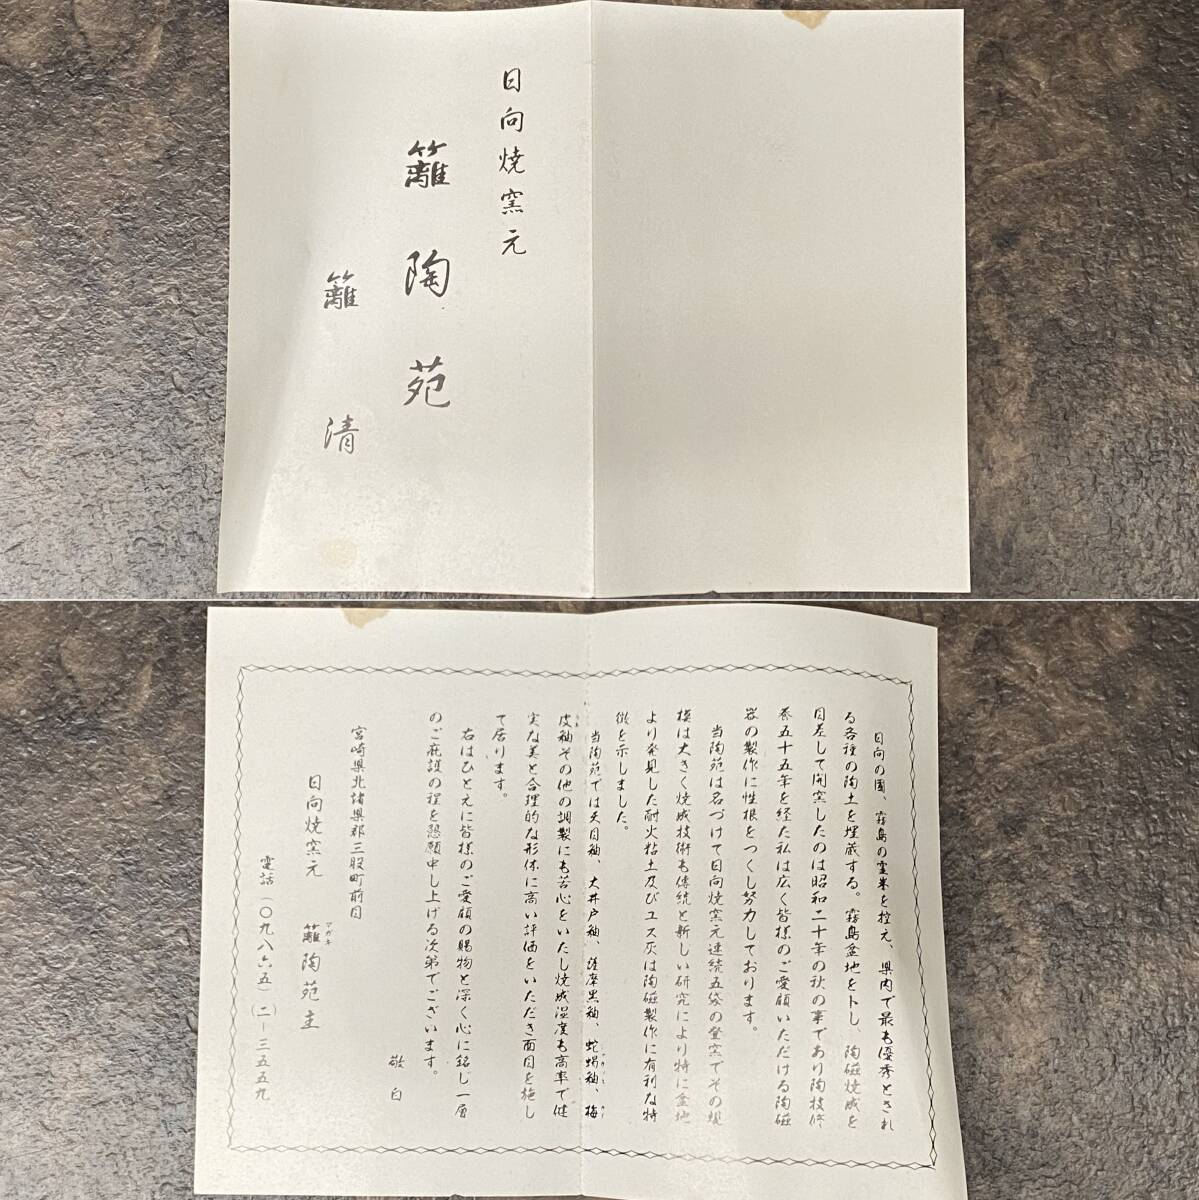 日向焼窯元
籬陶苑
籬清
日向の國、霧島の霊峯を控え、県内で最も優秀とされ
る各種の陶土を埋蔵する。霧島盆地を卜し、陶磁焼成を
目差して開窯したのは昭和二十年の秋の事であり陶技修
五十五年を経た私は広く皆様のご愛顧いただける陶磁
器の製作に性根をつくし努力しております。
当陶苑は名づけて日向焼窯元連続五袋の登窯でその規
模は大きく焼成技術も傳統と新しい研究により特に盆地
より発見した耐火粘土及びユス灰は陶磁製作に有利な特
徴を示しました。
当陶苑では天目釉、大井戸釉、薩摩黒釉、蛇蝎釉、梅
皮釉その他の調製にも苦心をいたし焼成湿度も高率で健
実な美と合理的な形体に高い評価をいただき面目を施し
て居ります。
右はひとえに皆様のご愛顧の賜物と深く心に銘じ一層
のご庇護の程を懇願申し上げる次第でございます。
敬白
宮崎県北諸県郡三股町前目
日向焼窯元 籬陶苑主
マガキ
電話(〇九八六五)(二-三五五九